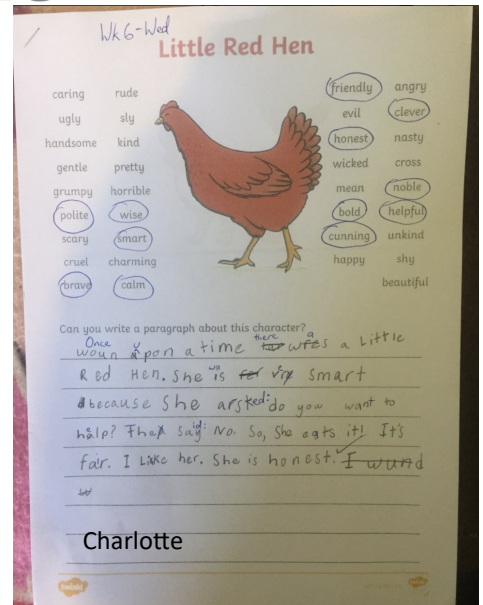 Wk 6-Wed
Little Red Hen
caring rude
ugly sly
handsome kind
gentle pretty
grumpy horrible
polite wise
scary smart
cruel charming
brave calm
friendly angry
evil clever
honest nasty
wicked cross
mean noble
bold helpful
cunning unkind
happy shy
beautiful
Can you write a paragraph about this character?
Once there a
upon a time was a Little
Red Hen. She is smart
because She arsked: do you want to
help? They said: No. So, She eats it! It's
fair. I Like her. She is honest.
Charlotte
twinkl